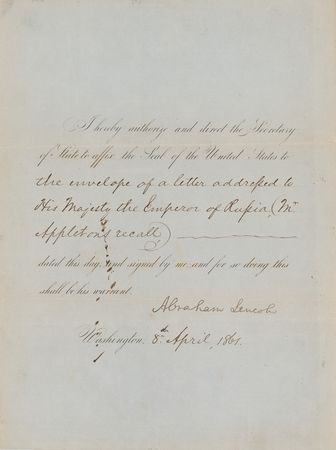 I hereby authorize and direct the Secretary
of State to affix the Seal of the United States to
the envelope of a letter addressed to
His Majesty the Emperor of Russia, (Mr
Appleton's recall)
dated this day, and signed by me and for so doing this
shall be his warrant.
Abraham Lincoln
Washington, 8th April, 1861.